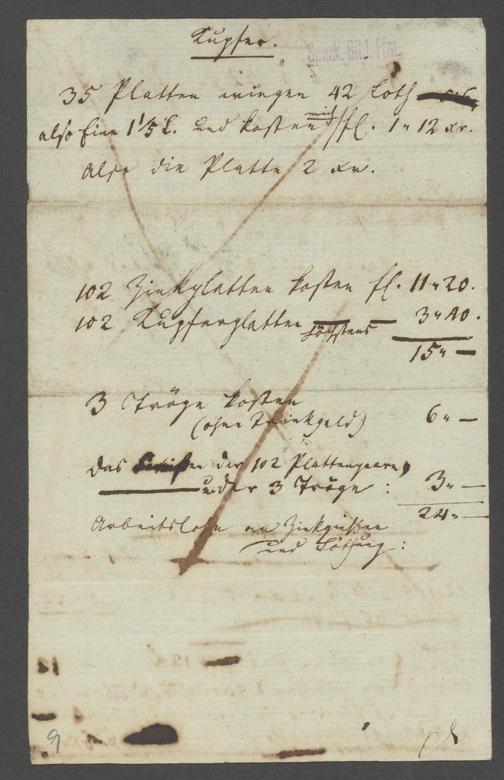 Kupfer.
Senck. Bibl. Ffm.
35 Platten wiegen 42 Loth
also Eine 1 1/5 L. und kosten mich fl. 1 " 12 xr.
also die Platte 2 xr.
102 Zinkplatten kosten fl. 11 " 20.
102 Kupferplatten — höchstens — 3 " 40.
15 " —
3 Tröge kosten
(ohne Trinkgeld) 6 " —
das en der 102 Plattenpaare,
und der 3 Tröge : 3 " —
24 " —
Arbeitslohn an Zinkgießen
und Löthung :
9